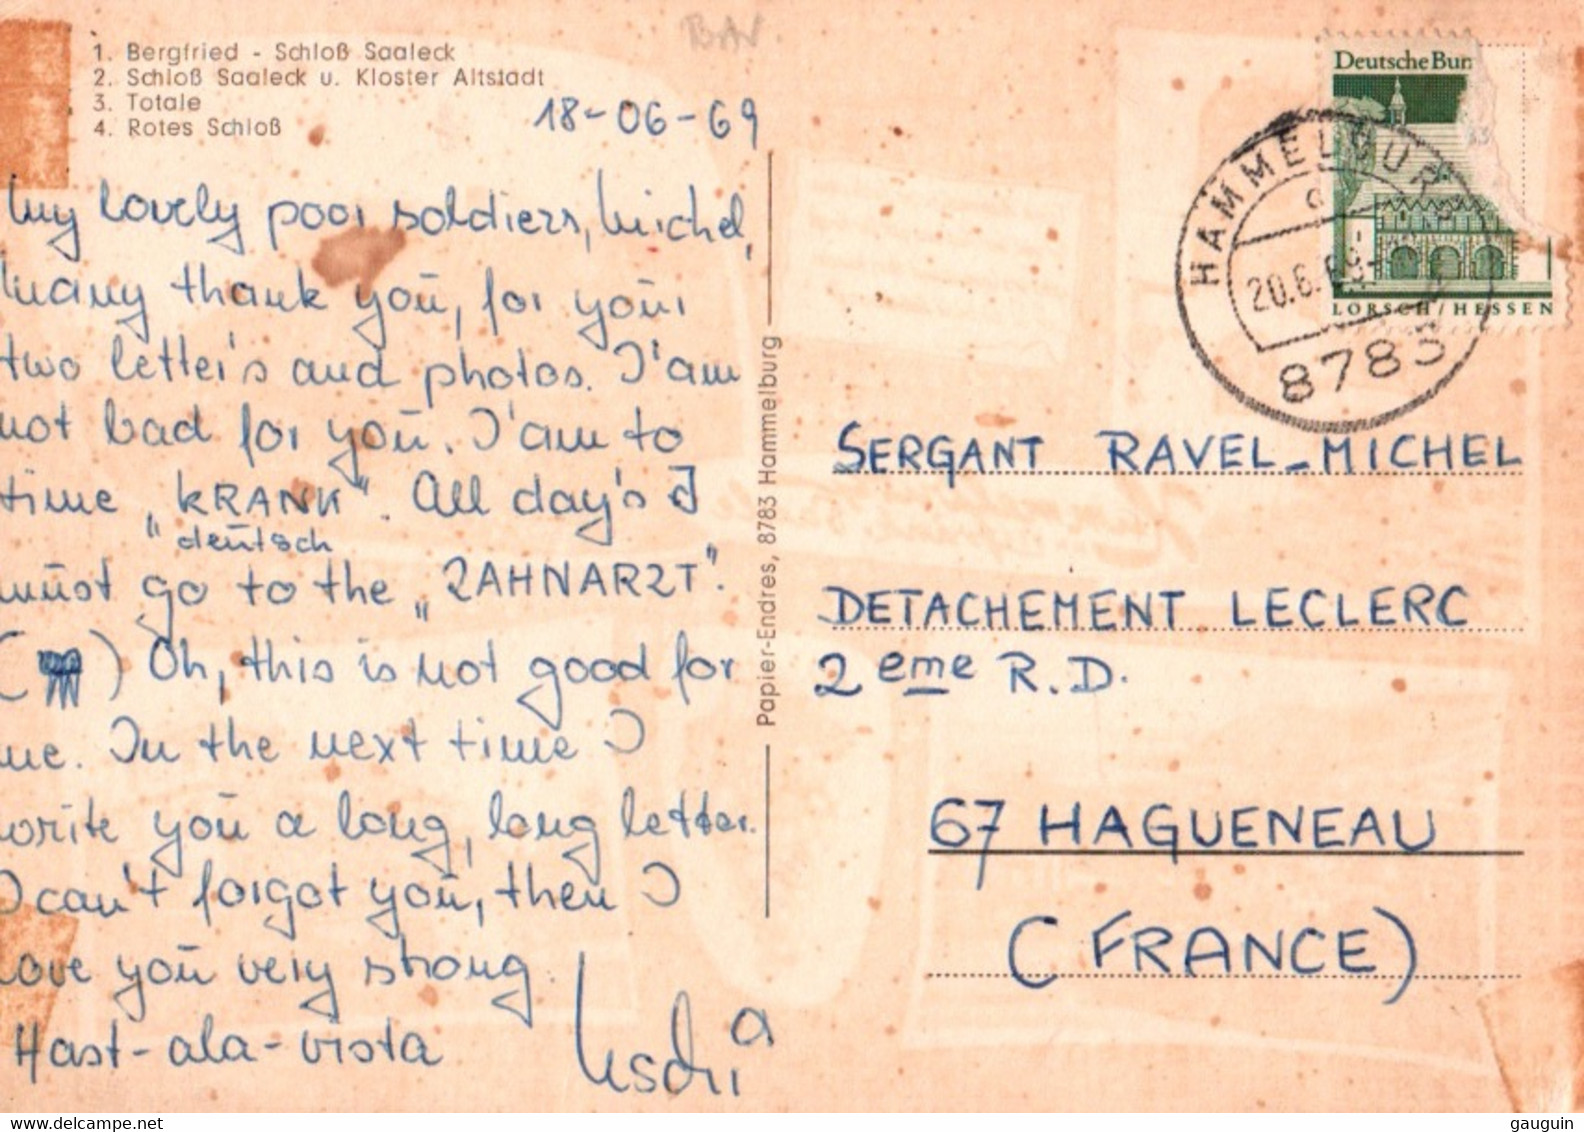 BAV
1. Bergfried - Schloß Saaleck
2. Schloß Saaleck u. Kloster Altstadt
3. Totale
4. Rotes Schloß
18-06-69
My lovely poor soldiers, Michel,
many thank you, for your
two letter's and photos. I'am
not bad for you. I'am to
time „KRANK". All day's I
deutsch
must go to the „ZAHNARZT".
( ) Oh, this is not good for
me. In the next time I
write you a long, long letter.
I can't forgot you, then I
love you very strong.
Hast-ala-vista Uschi
Papier-Endres, 8783 Hammelburg
Deutsche Bun
LORSCH/HESSEN
HAMMELBUR
a
20.6.69-
8783
SERGANT RAVEL-MICHEL
DETACHEMENT LECLERC
2eme R.D.
67 HAGUENEAU
(FRANCE)
gauguin